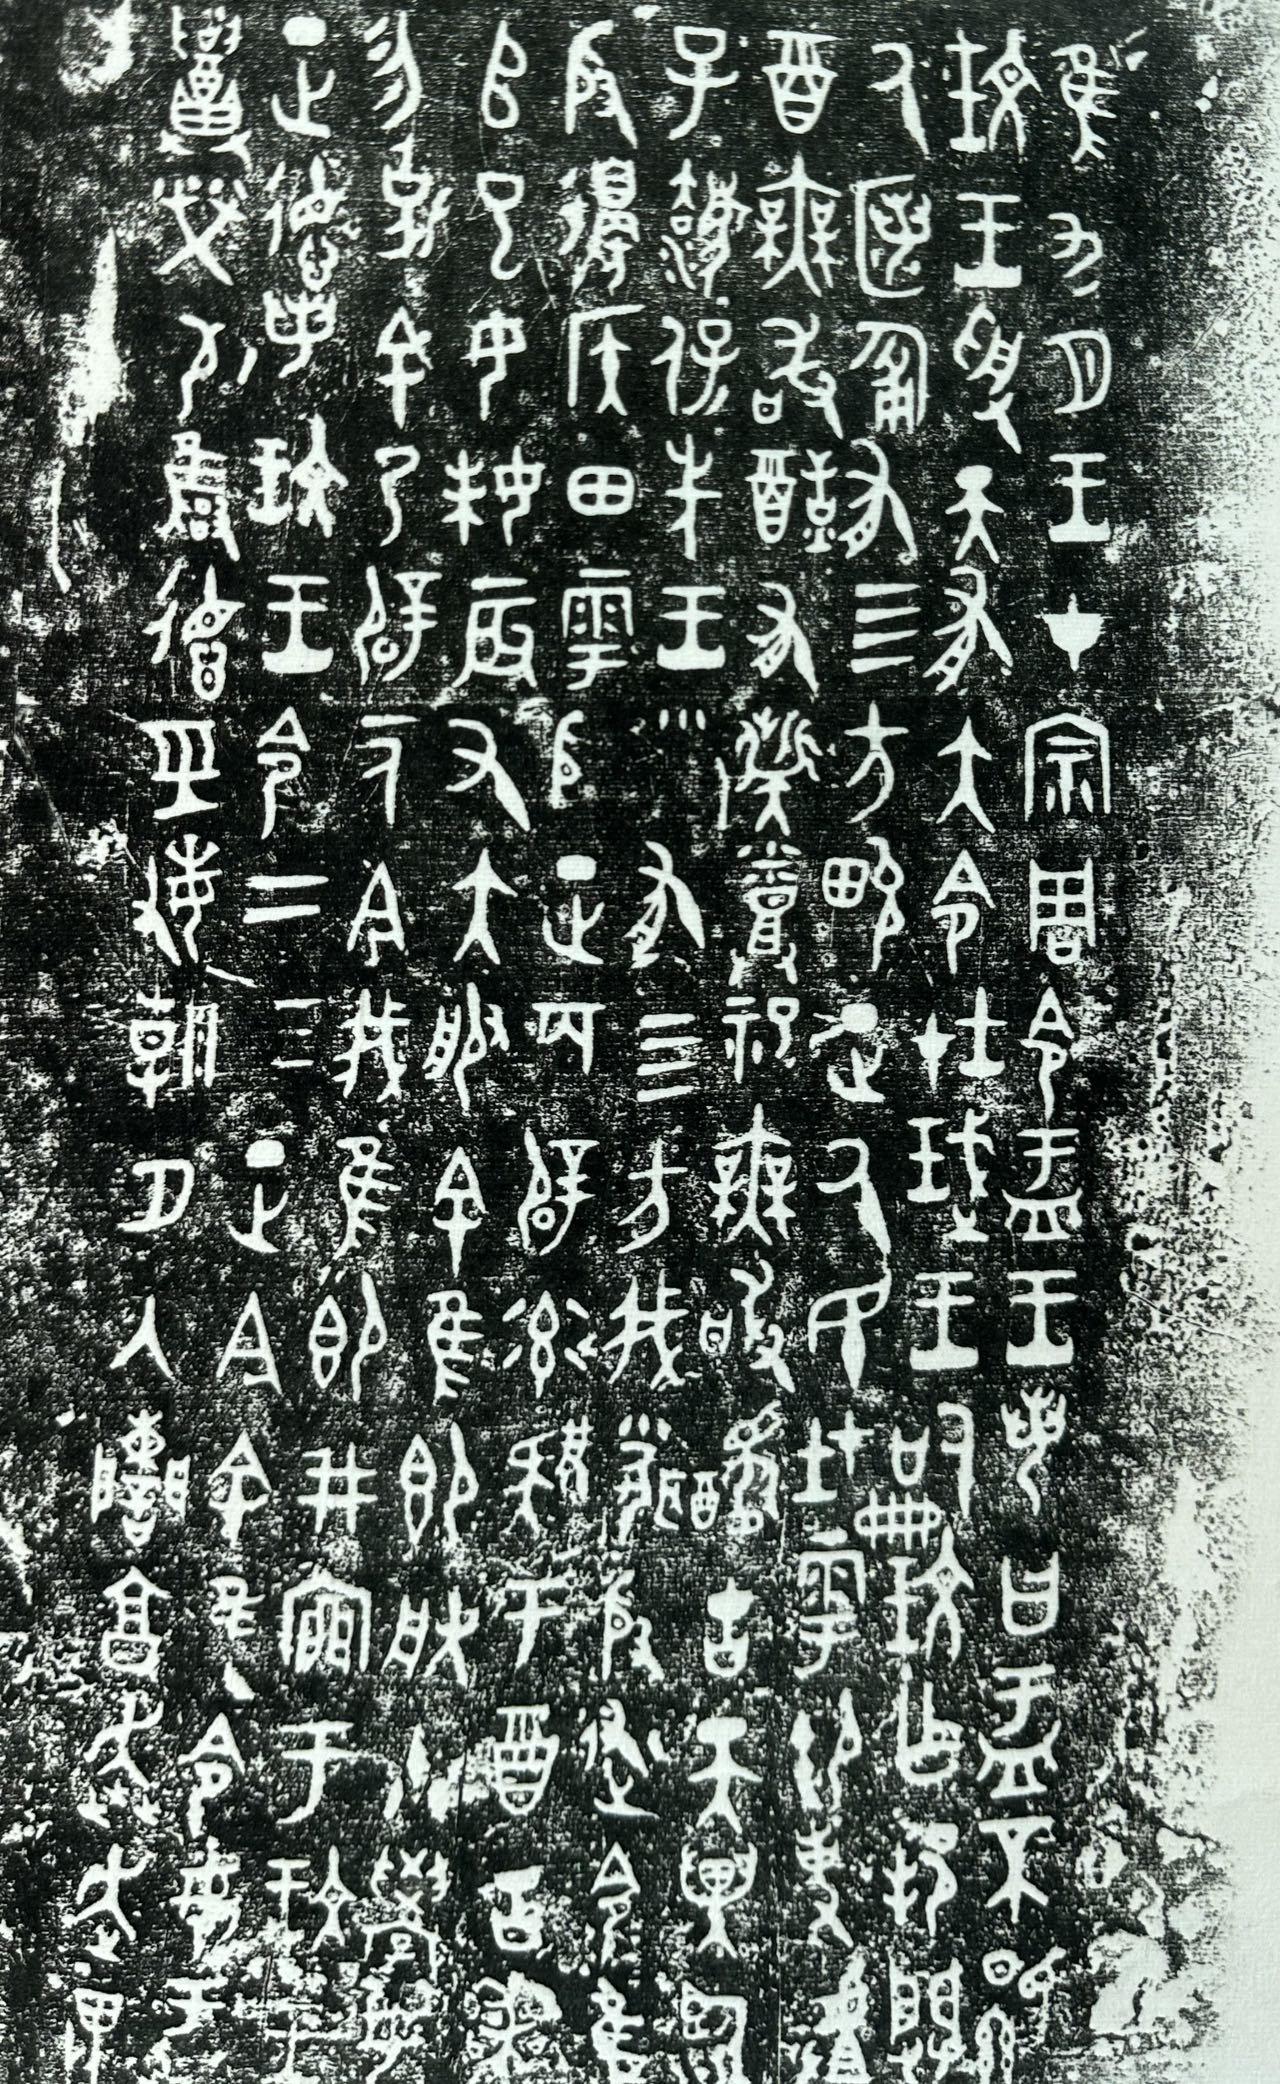 隹九月王才宗周令盂王若曰盂不顯
玟王受天有大令在珷王嗣玟乍邦闢
氒匿匍有四方畯正氒民在雩御事䖒
酉無敢酖有髭糞祀無敢醻古天異臨
子灋保先王有四方我聞殷述令隹
殷邊侯田雩殷正百辟率肄于酉古喪
𠂤已女妹辰又大服余隹即朕小學女
勿余乃辟一人今我隹即井㐭于玟王
正德若玟王令二三正今余隹令女盂
召榮敬雍德巠敏朝夕入讕享奔走畏